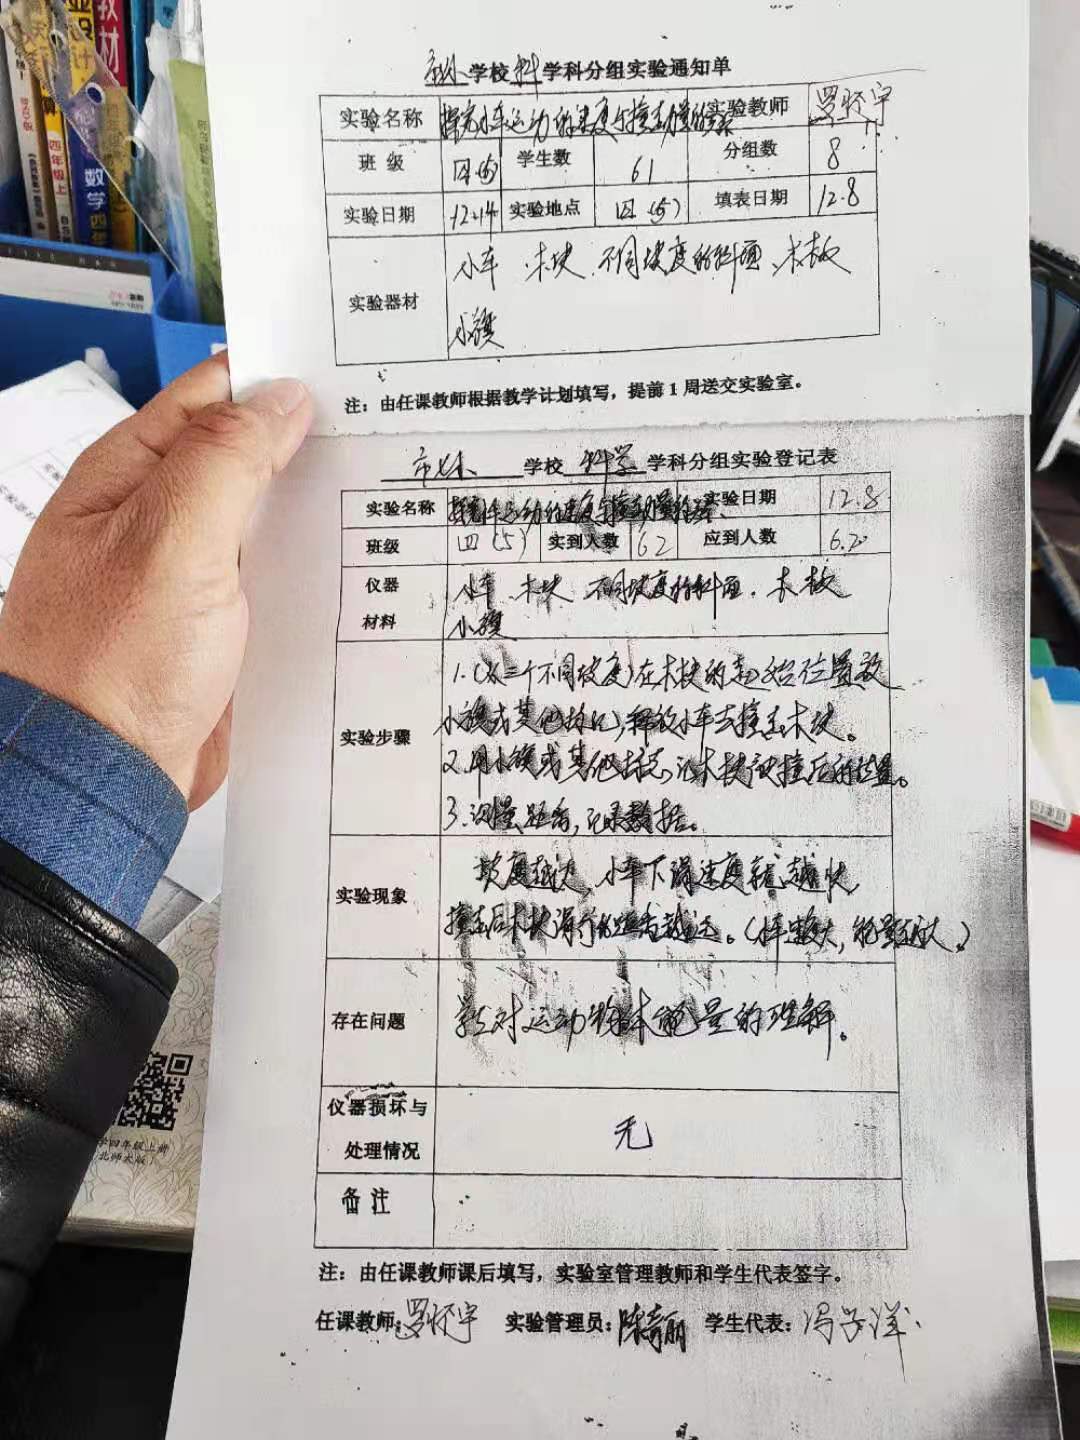 学校 科 学科分组实验通知单
实验名称 探究小车运动的速度与撞击 实验教师 罗怀宇
班 级 四(5) 学生数 61 分组数 8
实验日期 12.14 实验地点 四(5) 填表日期 12.8
实验器材 小车 木块 不同坡度的斜面、木板
小旗
注：由任课教师根据教学计划填写，提前1周送交实验室。
学校 科学 学科分组实验登记表
实验名称 运动的速度与撞击 实验日期 12.8
班级 四(5) 实到人数 62 应到人数 6.2
仪器 小车 木块 不同坡度的斜面. 木板
材料 小旗
1.(从三个不同坡度)在木块的起始位置放
小旗或其他标记,释放小车去撞击木块。
实验步骤
2.用小旗或其他标志,记木块被撞后的位置。
3.测量距离,记录数据。
坡度越大,小车下滑速度就越快,
实验现象
撞击后木块滑行的距离越远。(小车 大,能量越大)
存在问题 对运动物体能量的理解。
仪器损坏与
处理情况 无
备 注
注：由任课教师课后填写，实验室管理教师和学生代表签字。
任课教师：罗怀宇 实验管理员：陈 丽 学生代表：冯子洋
数学
四年级上
学四年级上册
北师大版